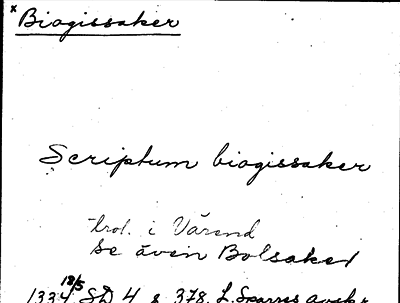 * Biogissaker
Scriptum biogissaker
trol. i Värend
Se även Bolsaker
1334 18/5 SD 4 s 378. L. Sparres avskr.